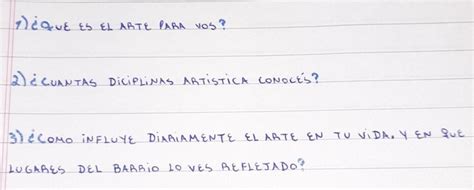 1) ¿QUE ES EL ARTE PARA VOS?
2) ¿CUANTAS DICIPLINAS ARTISTICA CONOCÉS?
3) ¿COMO INFLUYE DIARIAMENTE EL ARTE EN TU VIDA. Y EN QUE
LUGARES DEL BARRIO LO VES REFLEJADO?